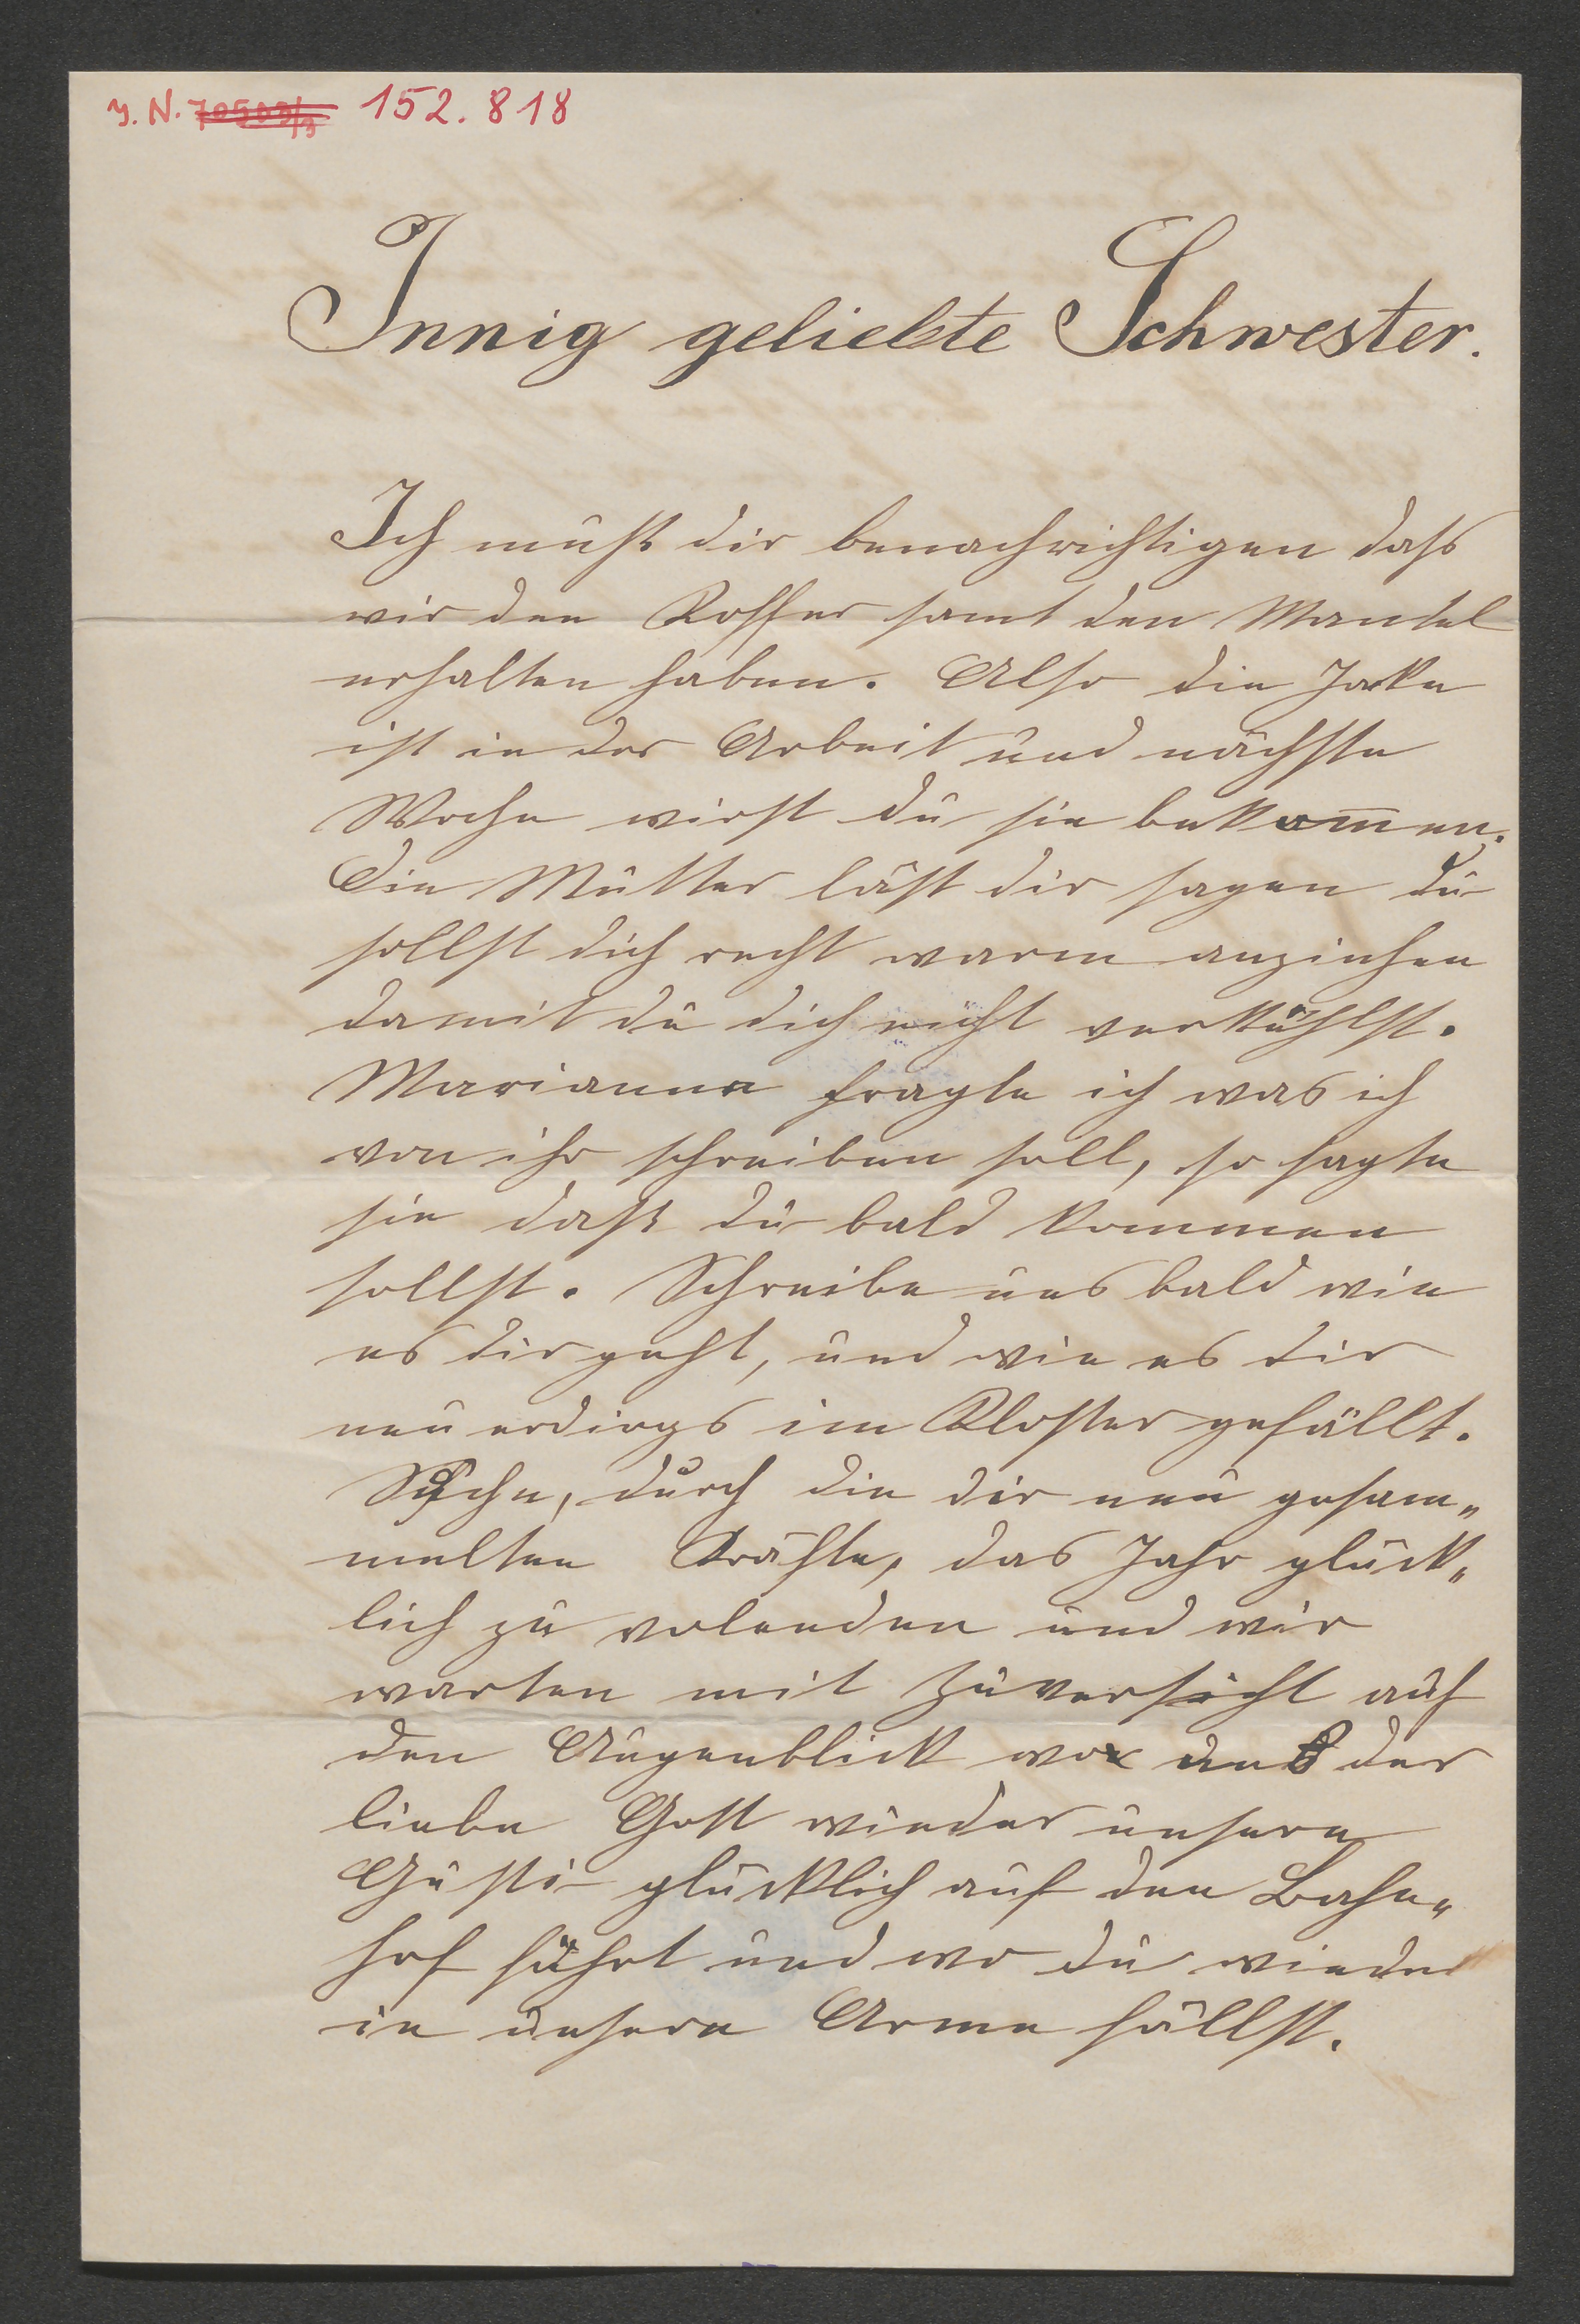 J. N. 152.818
Innig geliebte Schwester.
Ich muß dir benachrichtigen daß
wir den Koffer samt den Mantel
erhalten haben. Also die Jacke
ist in der Arbeit und nächste
Woche wirst du sie bekom̅en.
Die Mutter läst dir sagen du
sollst dich recht warm anziehen
damit du dich nicht verkühlst.
Marianna fragte ich was ich
von ihr schreiben soll, so sagte
sie daß du bald kommen
sollst. Schreibe uns bald wie
es dir geht, und wie es dir
neuerdings im Kloster gefällt.
Suche, durch die dir neu gesam„
melten Kräfte, das Jahr glück„
lich zu volenden und wir
warten mit Zuversicht auf
den Augenblick wo uns der
liebe Gott wieder unsere
Gusti glücklich auf den Bahn„
hof führt und wo du wieder
in unsere Arme fällst.